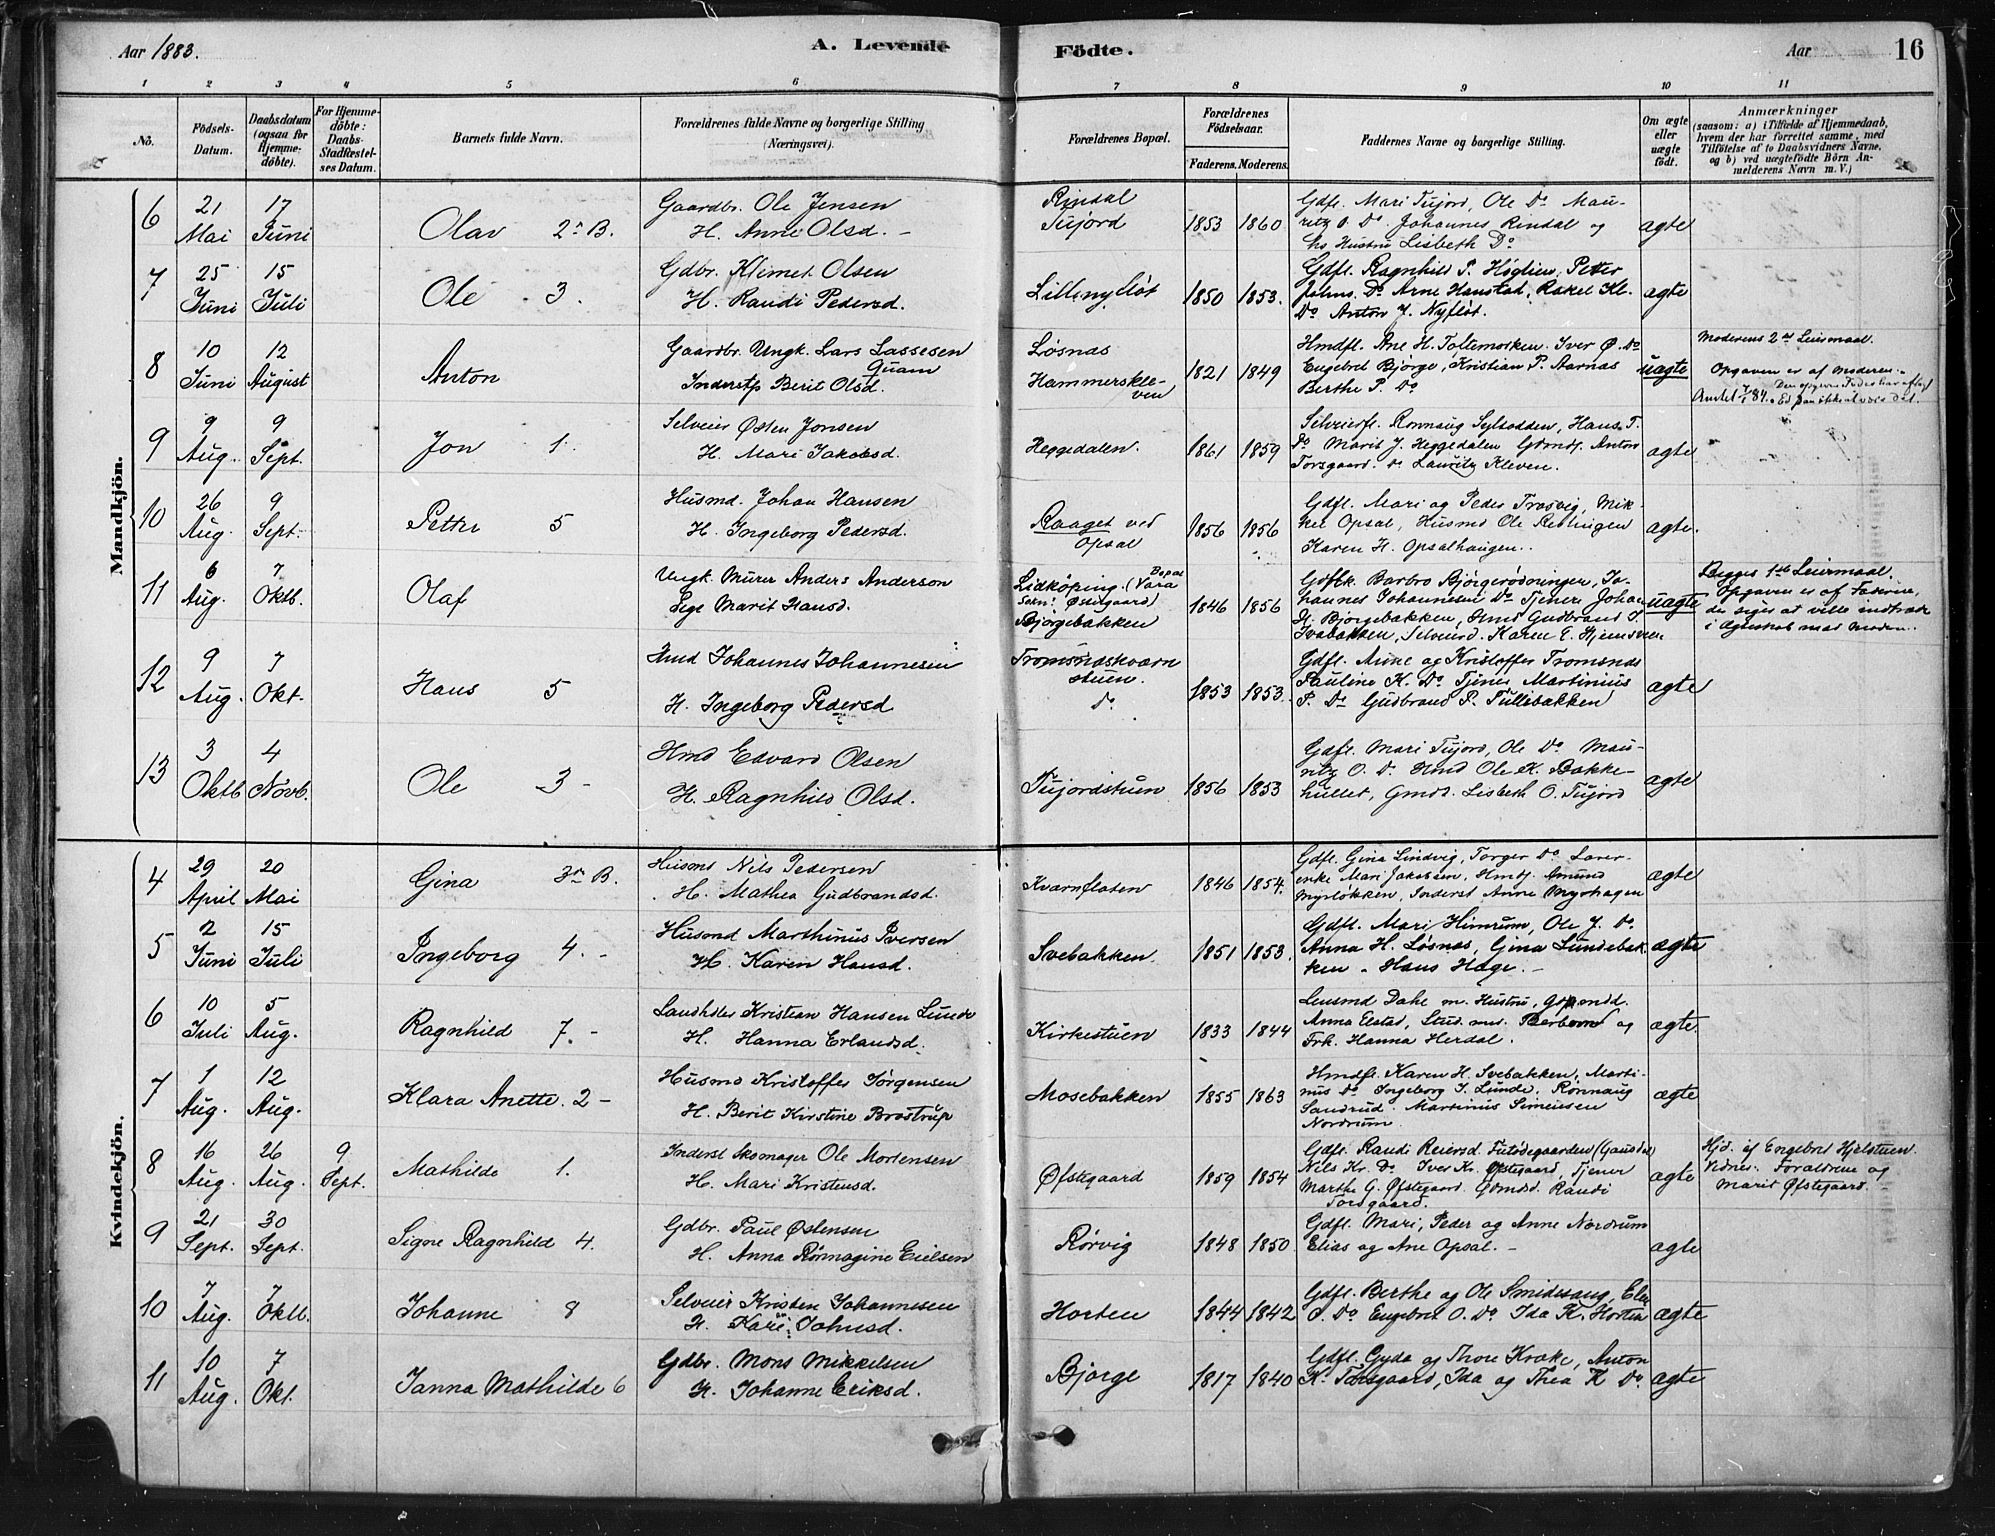 Aar 1883.
A. Levende Födte.
Aar
16
1 2 3 4 5 6 7 8 9 10 11
No.
Födsels-Datum.
Daabsdatum (ogsaa for Hjemme-döbte).
For Hjemme-döbte: Daabs-Stadfæstel-ses Datum.
Barnets fulde Navn.
Forældrenes fulde Navne og borgerlige Stilling (Næringsvei).
Forældrenes Bopæl.
Forældrenes Födselsaar.
Faderens. Moderens.
Faddernes Navne og borgerlige Stilling.
Om ægte eller uægte födt.
Anmærkninger
(saasom: a) i Tilfælde af Hjemmedaab, hvem der har forrettet samme, med Tilföielse af to Daabsvidners Navne, og b) ved uægtefödte Börn An-melderens Navn m.V.)
Mandkjön.
6 21 Mai 17 Juni Olav 2n B.
Gaardbr. Ole Jensen
H. Anne Olsd. -
Rindal
Tujord 1853 1860
Gdfl. Mari Tujord, Ole Do Mau-
ritz O. Do Johannes Rindal og
hs Hustru Lisbeth Do
ægte
7 25 Juni 15 Juli Ole 3.
Gdbr. Klimet Olsen
H. Randi Pedersd.
Lillenyfløt 1850 1853.
Gdfl. Ragnhild P. Høglien, Petter
Johns. Do Arne Hanstad, Rakel Kl.
Do Anton J. Nyfløt.
ægte
8 10 Juni 12 August Anton
Gaardbr. Ungk. Lars Lassesen
Quam
Inderstp Berit Olsd.
Løsnas
Hammerskle-
ven 1821 1849
Hmdfl. Ane H. Toltemosken. Iver Ø. Do
Engebret Bjørge, Kristian P. Aarnas
Berthe P. Do
uægte
Moderens 2det Leiermaal.
Opgaven er af Moderen.
9 9 Aug. 9 Sept. Jon 1.
Selveier Østen Jonsen
H. Mari Jakobsd.
Heggedalen. 1861 1859
Selveierfl. Rønnaug Sylsodden, Hans T.
Do Marit J. Heggedalen Gdmdf. Anton
Torsgaard. do Lauritz Kleven.
ægte
10 26 Aug. 9 Sept. Petter 5
Husmd. Johan Hansen
H. Ingeborg Pedersd.
Raaget ved
Opsal 1856 1856
Gdfl. Mari og Peder Trosvig, Mik-
kel Opsal, Husmd Ole Redlingen
Karen H. Opsalhaugen.
ægte.
11 6 Aug. 7 Oktb. Olaf
Ungk. Murer Anders Anderson
Pige Marit Hansd.
Lidköping. (Vara
Bopæl
Sokn! Østegaard)
Bjørgebakken 1846 1856
Gdflk. Barbro Bjørgerødningen, Jo-
hannes Johannesen Do Tjener Johan
H. Bjørgebakken, Hmd Gudbrand I.
Ivebakken, Selveierd. Karen E. Hjemsveen
uægte
Begges 1ste Leiermaal.
Opgaven er af Faderen,
der siges at ville indtræde
i Ægteskab med Moderen.
12 9 Aug. 7 Okt. Hans 5
Hmd Johannes Johannesen
H. Ingeborg Pedersd
Tromsnæskværn
stuen.
Do 1853 1853.
Gdfl. Anne og Kristoffer Tromsnæs
Pauline K. Do Tjener Martinius
P. Do Gudbrand P. Tullibakken
ægte
13 3 Oktb 4 Novb. Ole 3 -
Hmd Edvard Olsen
H. Ragnhild Olsd.
Tujordstuen 1856 1853
Gdfl. Mari Tujord, Ole Do Mau-
ritz O. Do Hmd Ole K. Bakke-
hullet, Gmds. Lisbeth O. Tujord
ægte
Kvindekjön.
4 29 April 20 Mai Gina 3n B.
Husmd Nils Pedersen
H. Mathea Gudbrandsd.
Kvarnfloten 1846 1854.
Gdfl. Gina Lindvig, Torger Do Larer-
enke Mari Jakobsen, Hmdf. Amund
Myrløkken, Inderst Anne Myrhagen
ægte
5 2 Juni 15 Juli Ingeborg 4. -
Husmd Marthinus Iversen
H. Karen Hansd.
Svebakken. 1851 1853.
Gdfl. Mari Himrum, Ole J. Do
Anna H. Løsnas, Gina Lundebak-
ken. Hans Hage. -
ægte
6 10 Juli 5 Aug. Ragnhild 7. -
Landhdler Kristian Hansen Lunde
H. Hanna Erlandsd.
Kirkestuen 1833 1844
Lensmd Dahl m. Hustru,
Anna Elstad, Stud. med. og
Frk. Hanna Herdal.
ægte
7 1 Aug. 12 Aug. Klara Anette. 2 -
Husmd Kristoffer Jørgensen
H. Berit Kirstine Brostrup
Mosebakken 1855 1863
Hmdfl. Karen H. Svebakken, Marti-
nus Do Ingeborg I. Lunde. Rønnaug
Sandrud. Martinus Simensen
Nordrum
ægte
8 16 Aug. 26 Aug. 9 Sept. Mathilde 1.
Inderst Skomager Ole Mortensen
H. Mari Kristensd.
Øfstegaard 1859 1854
Gdfl. Randi Reiersd. Futodegaarden (Gausdal
Nils Kr. Do Iver Kr. Øfstegaard, Tjener
Marthe G. Øfstegaard. Gdmdsd. Randi
Torsgaard.
ægte
Hjd. af Engebret Hjelstuen
Vidner. Forældrene og
Marit Øfstegaard.
9 21 Sept. 30 Sept. Signe Ragnhild 4.
Gdbr. Paul Østensen
H. Anna Rømagine Eielsen
Rørvig 1848 1850
Gdfl. Mari, Peder og Anne Nordrum
Elias og Ane Opsal. -
ægte
10 7 Aug. 7 Oktb. Johanne 8
Selveier Kristen Johannesen
H. Kari Johnsd.
Horten 1844 1842
Gdfl. Berthe og Ole Smidesang, Elen
O. Do Engebret O. Do Ida K. Horten
ægte
11 10 Aug. 7 Okt. Janna Mathilde 6
Gdbr. Mons Mikkelsen
H. Johanne Eriksd.
Bjørge 1817 1840
Gdfl. Gyda og Thore Kroke, Anton
K. Torsgaard, Ida og Thea K Do
ægte